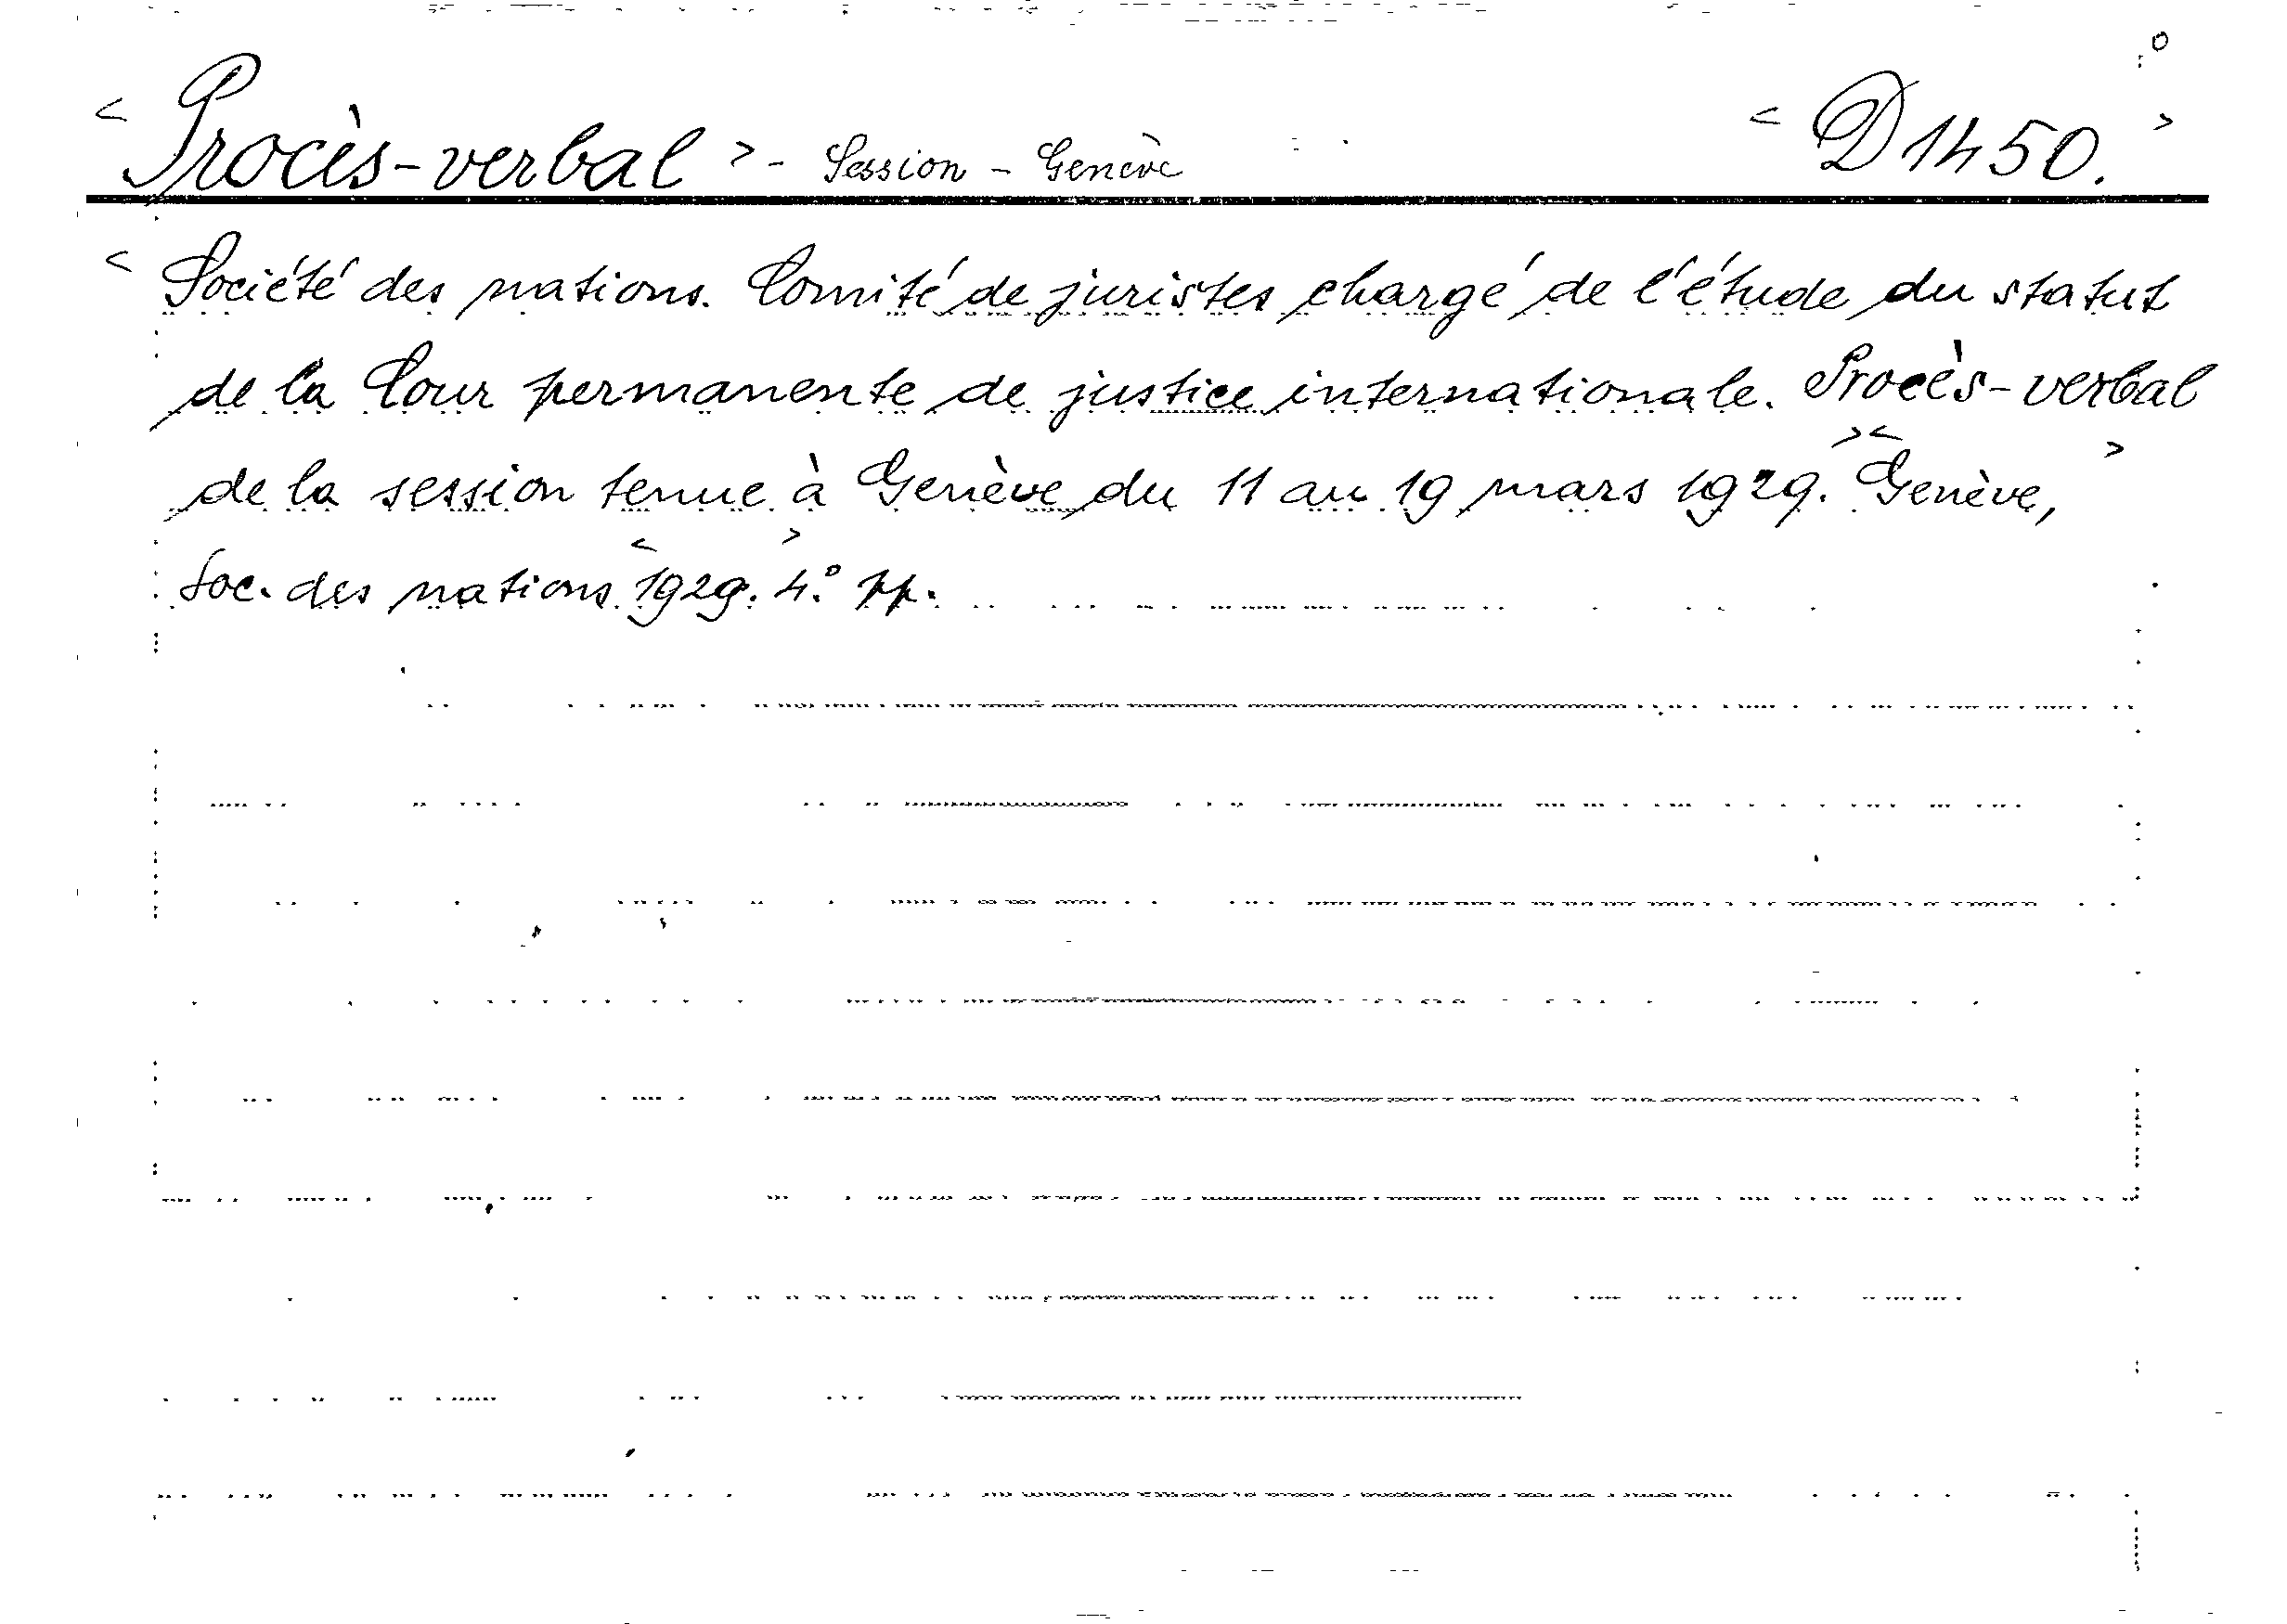 < Procès-verbal > - Session - Genève < D 1450. >
< Société des nations. Comité de juristes chargé de l'étude du statut
de la Cour permanente de justice internationale. Procès-verbal
de la session tenue à Genève du 11 au 19 mars 1929. >< Genève, >
Soc. des nations < 1929. > 4.° pp.